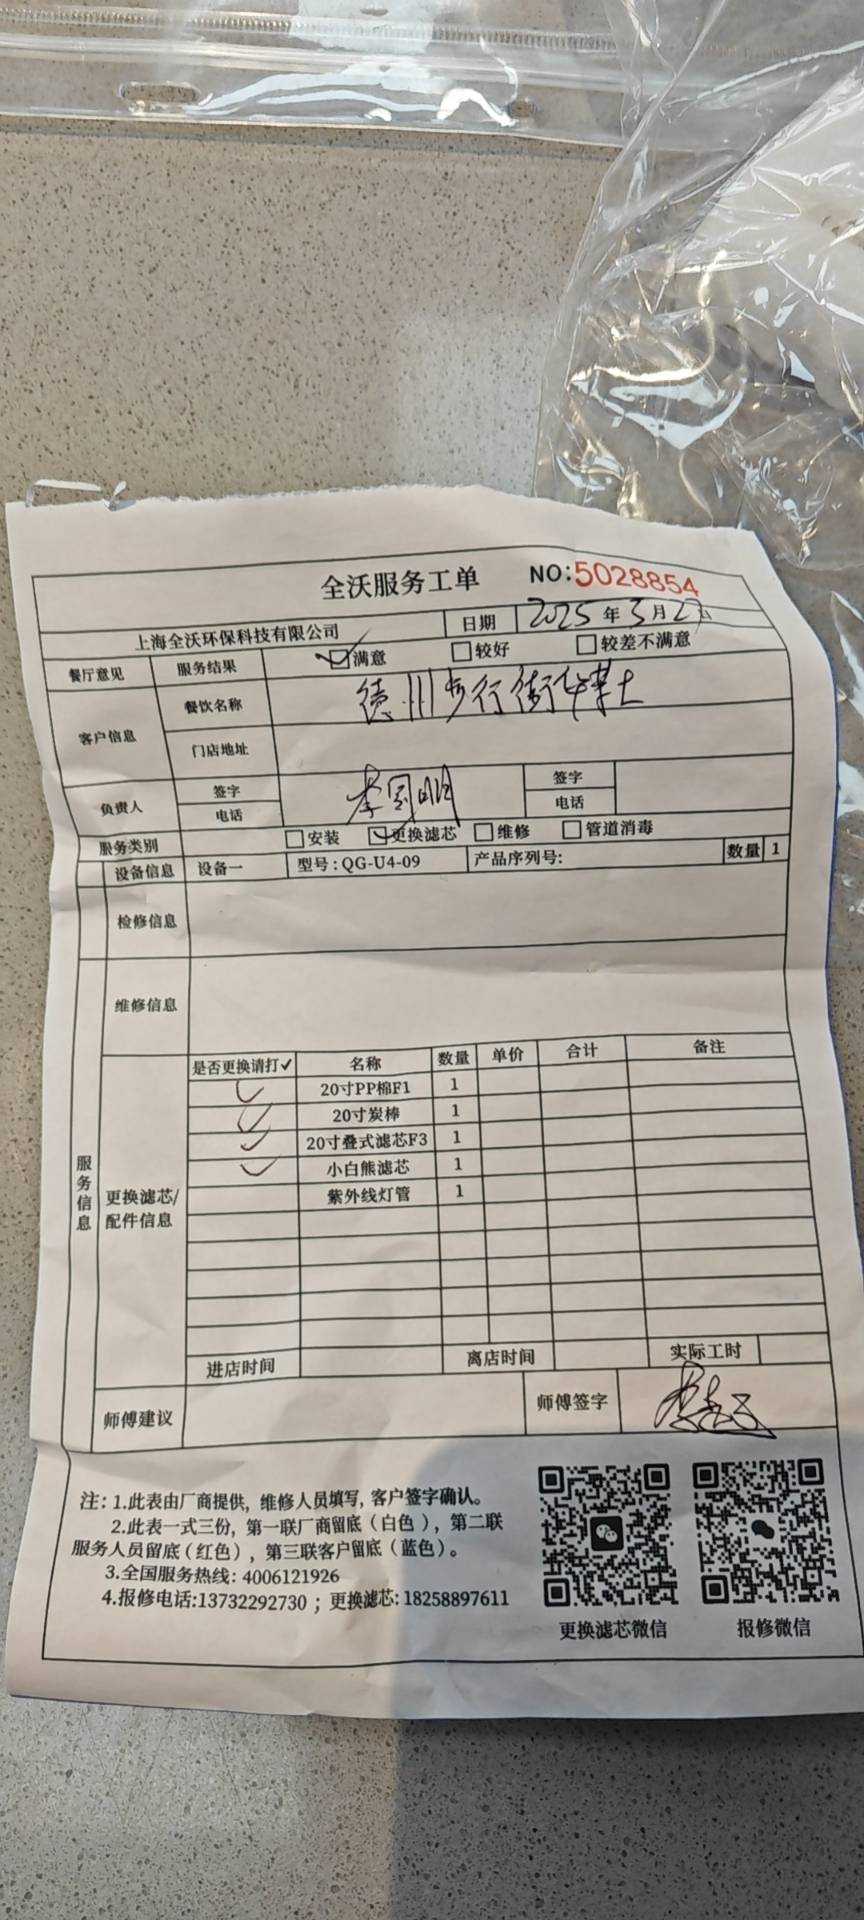 全沃服务工单 NO:5028854
上海全沃环保科技有限公司 日期 2025年3月27日
餐厅意见 服务结果 满意 较好 较差不满意
客户信息 餐饮名称 德川步行街华莱士
门店地址
负责人 签字 李国明 签字
电话 电话
服务类别 安装 更换滤芯 维修 管道消毒
设备信息 设备一 型号:QG-U4-09 产品序列号: 数量 1
检修信息
维修信息
服务信息
更换滤芯/配件信息
是否更换请打✓ 名称 数量 单价 合计 备注
✓ 20寸PP棉F1 1
✓ 20寸炭棒 1
✓ 20寸叠式滤芯F3 1
✓ 小白熊滤芯 1
紫外线灯管 1
进店时间 离店时间 实际工时
师傅建议 师傅签字
注:1.此表由厂商提供,维修人员填写,客户签字确认。
2.此表一式三份,第一联厂商留底(白色),第二联
服务人员留底(红色),第三联客户留底(蓝色)。
3.全国服务热线:4006121926
4.报修电话:13732292730;更换滤芯:18258897611
更换滤芯微信 报修微信